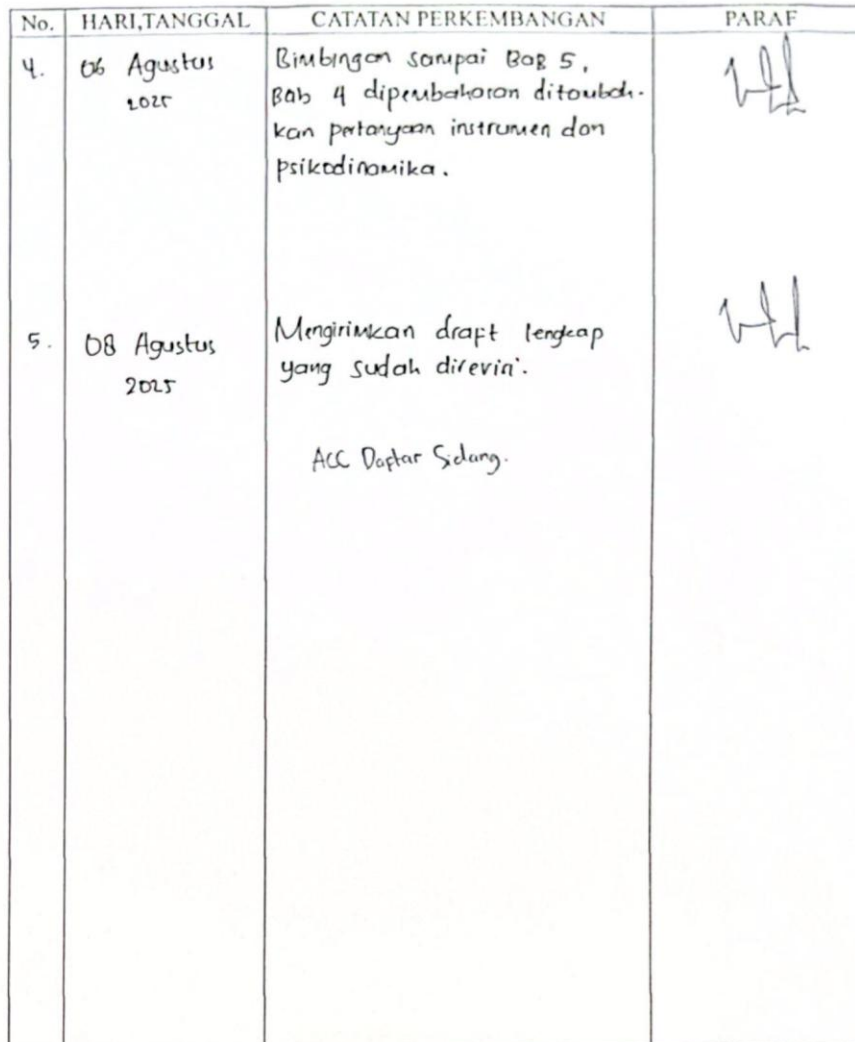 No. HARI,TANGGAL CATATAN PERKEMBANGAN PARAF
4. 06 Agustus Bimbingan sampai Bab 5,
2025 Bab 4 dipembahasan ditambah-
kan pertanyaan instrumen dan
psikodinamika.
5. 08 Agustus Mengirimkan draft lengkap
2025 yang sudah direvisi.
ACC Daftar Sidang.